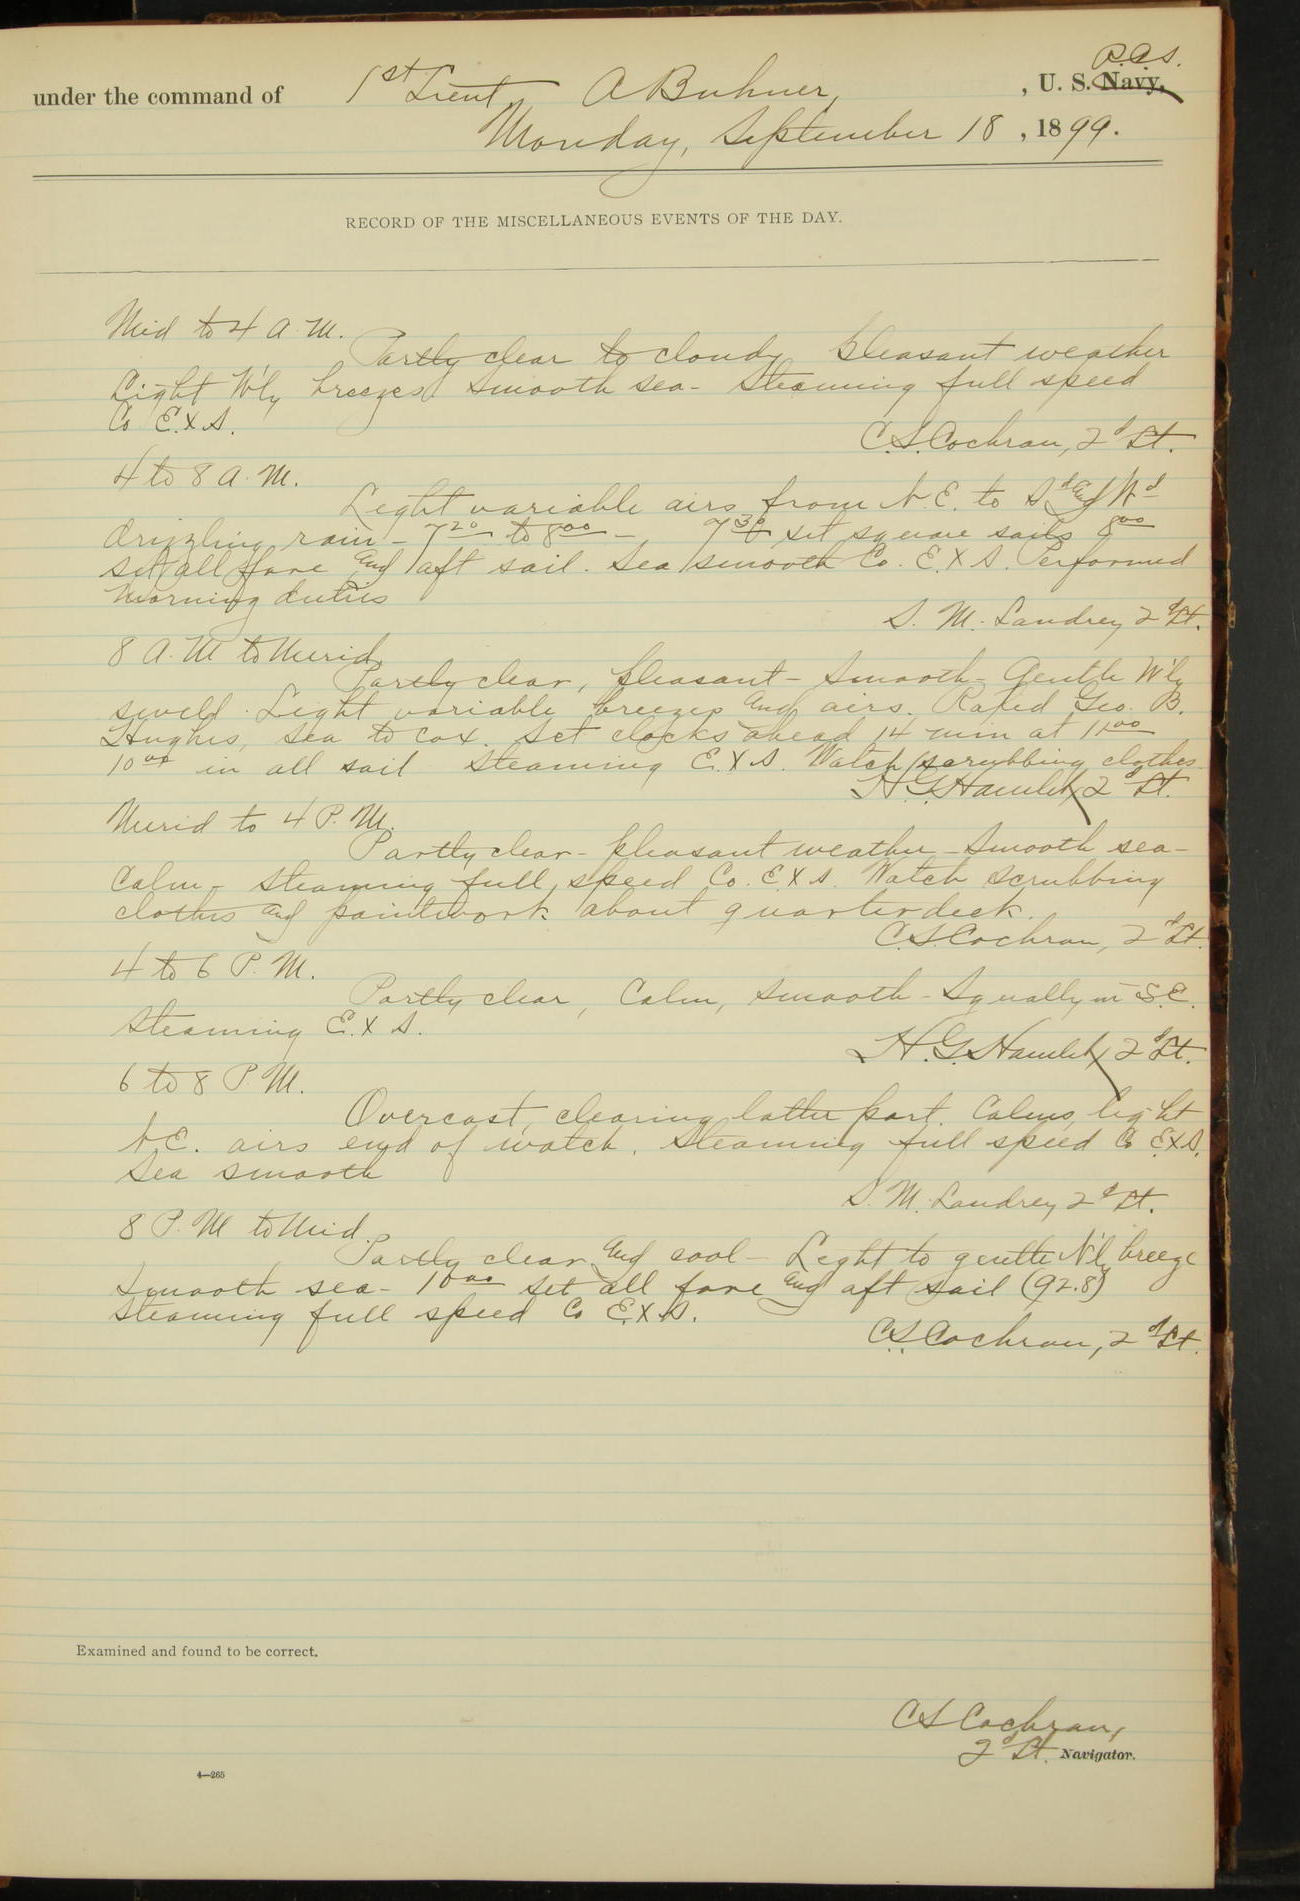 under the command of 1st Lieut, A Buhner, , U. S. Navy, R.C.S.
Monday, September 18 , 1899.
RECORD OF THE MISCELLANEOUS EVENTS OF THE DAY.
Mid to 4 A. M.
Partly clear to cloudy pleasant weather
Light W'ly breezes smooth sea - Steaming full speed
Co E. x S.
C. S. Cochran, 2d Lt.
4 to 8 A. M.
Light variable airs from N. E. to Sd and Wd
drizzling rain - 7 20 to 8 00 - 7 30 set square sails 8 00
set all fore and aft sail. Sea smooth Co. E. x S. Performed
morning duties
S. M. Landrey 2d Lt.
8 A. M to Merid.
Partly clear, pleasant - Smooth - Gentle W'ly
swell. Light variable breezes and airs. Rated Geo. B.
Hughes, Sea to Cox. Set clocks ahead 14 min at 11 00
10 00 in all sail Steaming E. x S. Watch scrubbing clothes
H. G. Hamlet 2d Lt.
Merid to 4 P. M.
Partly clear - pleasant weather - Smooth sea -
Calm - Steaming full speed Co. E x S. Watch scrubbing
clothes and paintwork about quarterdeck.
C. S. Cochran, 2d Lt.
4 to 6 P. M.
Partly clear, Calm, smooth - Squally in S. E.
Steaming E. x S.
H. G. Hamlet 2d Lt.
6 to 8 P. M.
Overcast, clearing latter part. Calms, light
N E. airs end of watch. Steaming full speed Co E. x S.
Sea smooth
S. M. Landrey 2d Lt.
8 P. M to Mid.
Partly clear and cool - Light to gentle N'ly breeze
Smooth sea - 10 00 set all fore and aft sail (92.8)
Steaming full speed Co E. x S.
C. S. Cochran, 2d Lt.
Examined and found to be correct.
C S Cochran,
2d Lt. Navigator.
4—265